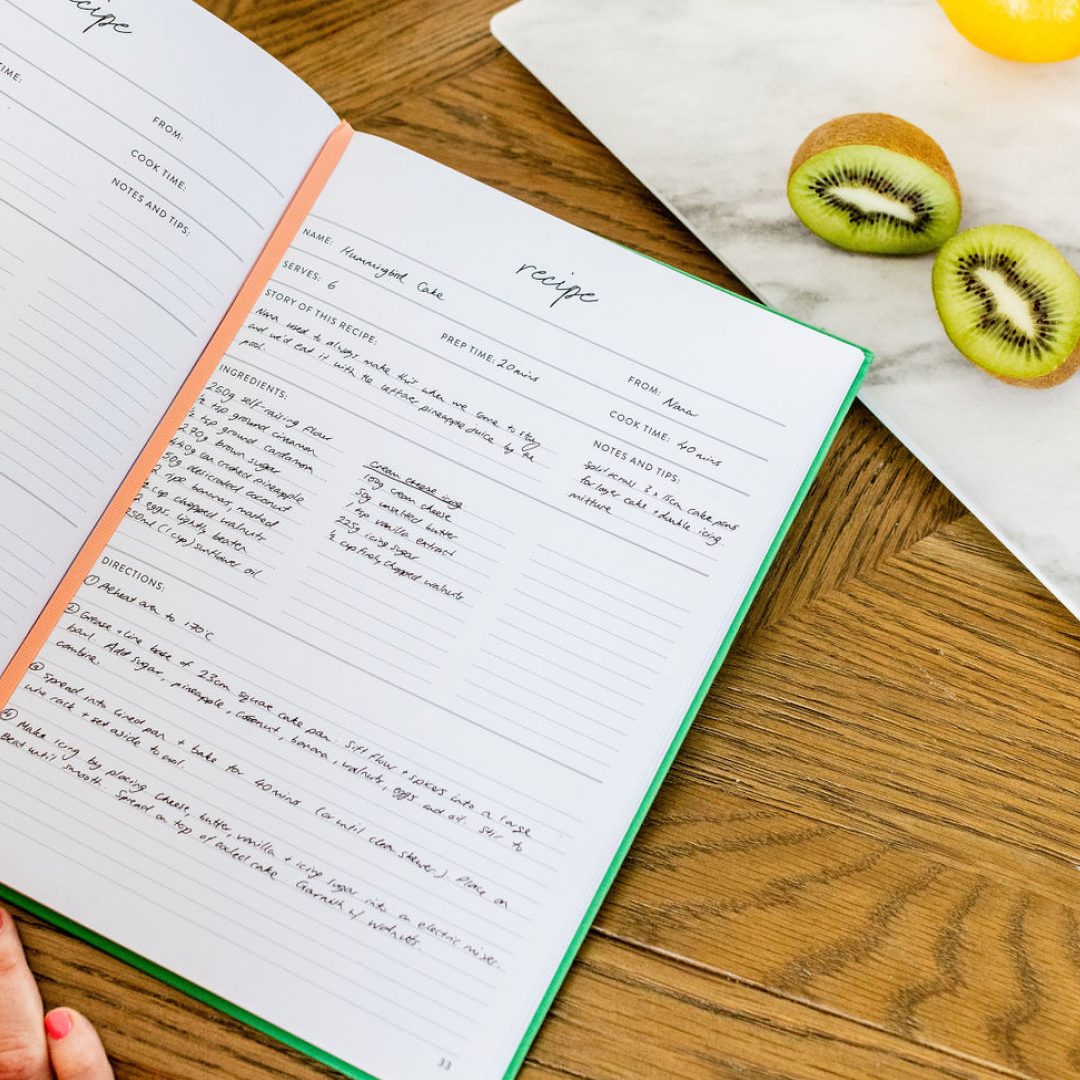 recipe
TIME:
FROM:
COOK TIME:
NOTES AND TIPS:
recipe
NAME: Hummingbird Cake
FROM: Nana
SERVES: 6
PREP TIME: 20 mins
COOK TIME: 40 mins
STORY OF THIS RECIPE:
Nana used to always make this when we came to stay
and we'd eat it with the leftover pineapple juice by the
pool.
NOTES AND TIPS:
Split across 2 x 15cm cake pans
for layer cake + double icing
mixture
INGREDIENTS:
260g self-raising flour
tsp ground cinnamon
tsp ground cardamon
270g brown sugar
440g can crushed pineapple
desiccated coconut
2 ripe bananas, mashed
cup chopped walnuts
eggs, lightly beaten
250ml (1 cup) sunflower oil
cream cheese icing
100g cream cheese
50g unsalted butter
1 tsp vanilla extract
225g icing sugar
½ cup finely chopped walnuts
DIRECTIONS:
① Preheat oven to 170°C
② Grease + line base of 23cm square cake pan. Sift flour + spices into a large
bowl. Add sugar, pineapple, coconut, banana, walnuts, eggs and oil. Stir to
combine.
③ Spread into lined pan + bake for 40 mins (or until clean skewer). Place on
wire rack + set aside to cool.
④ Make icing by placing cheese, butter, vanilla + icing sugar into an electric mixer.
Beat until smooth. Spread on top of cooled cake. Garnish w/ walnuts.
33